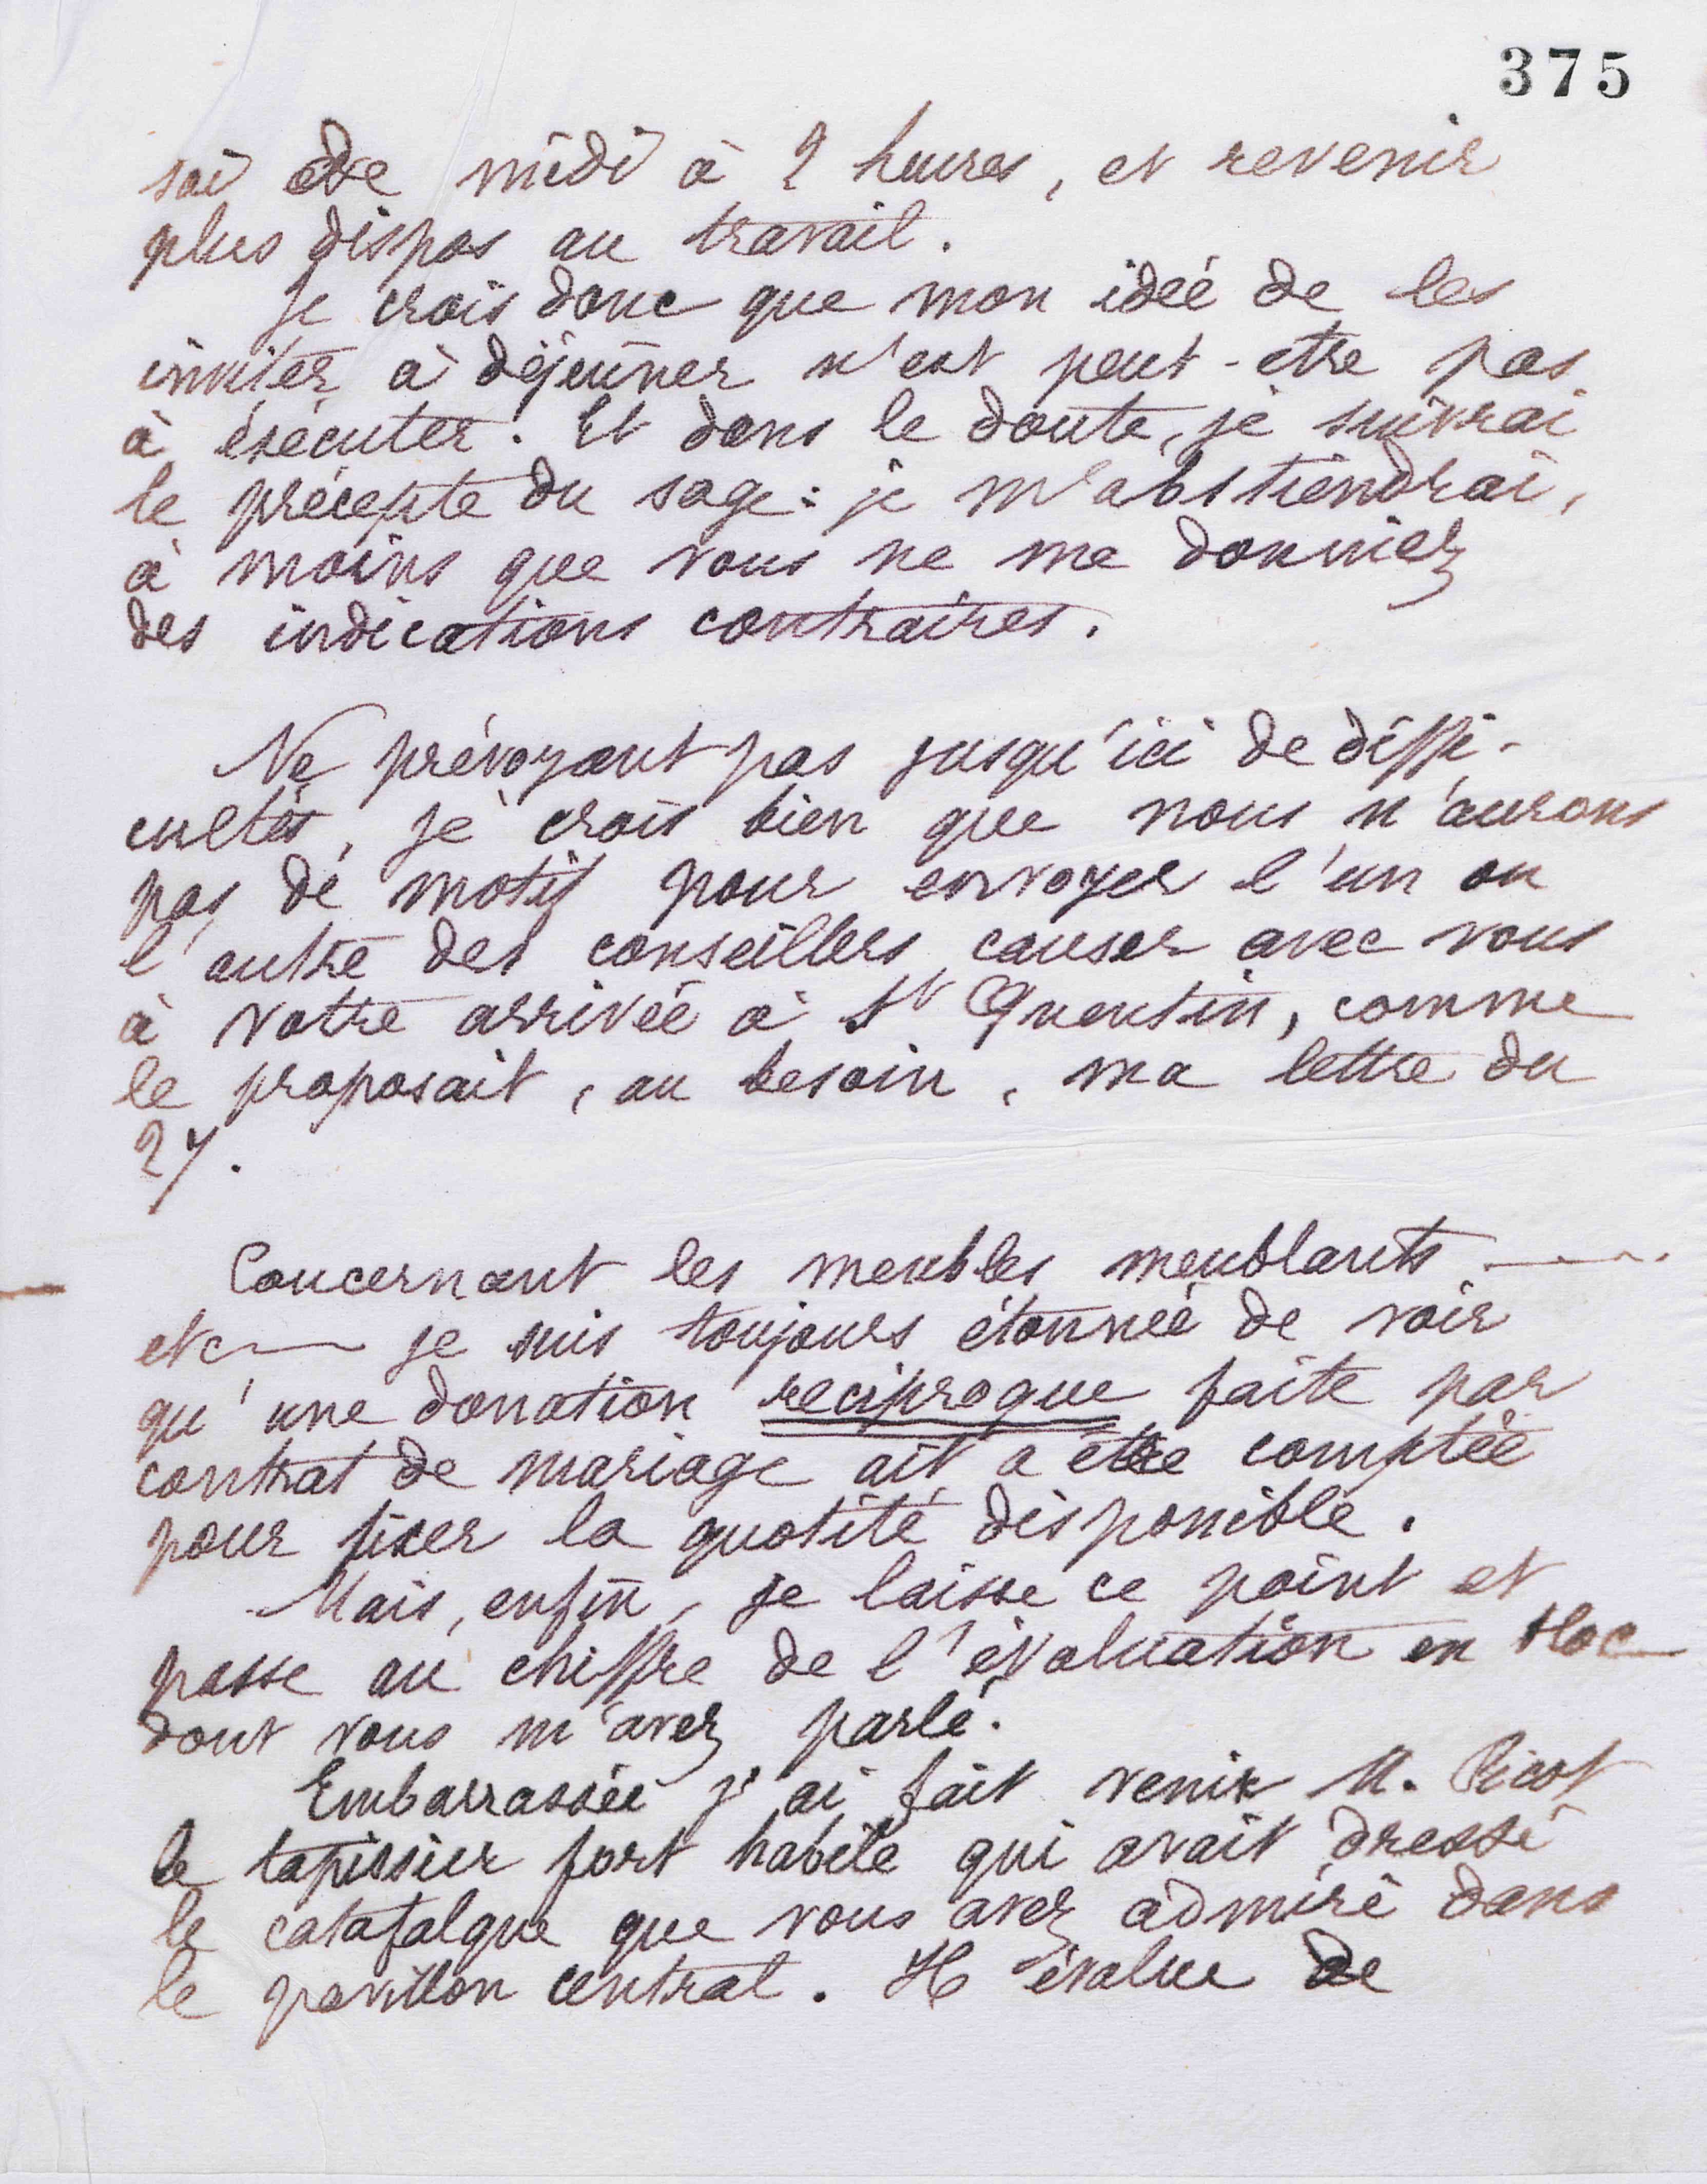 375
soi de midi à 2 heures, et revenir
plus dispos au travail.
Je crois donc que mon idée de les
inviter à déjeuner n'est peut-etre pas
à éxécuter. Et dans le doute, je suivrai
le précepte du sage: je m'abstiendrai,
à moins que vous ne me donniez
des indications contraires.
Ne prévoyant pas jusqu'ici de diffi-
cultés, je crois bien que nous n'aurons
pas de motif pour envoyer l'un ou
l'autre des conseillers causer avec vous
à votre arrivée à St Quentin, comme
le proposait, au besoin, ma lettre du
27.
Concernant les meubles meublants
etc je suis toujours étonnée de voir
qu'une donation reciproque faite par
contrat de mariage ait a être comptée
pour fixer la quotité disponible.
Mais, enfin, je laisse ce point et
passe au chiffre de l'évaluation en bloc
dont vous m'avez parlé.
Embarrassée j'ai fait venir M. Picot
le tapissier fort habile qui avait dressé
le catafalque que vous avez admiré dans
le pavillon central. Il évalue de